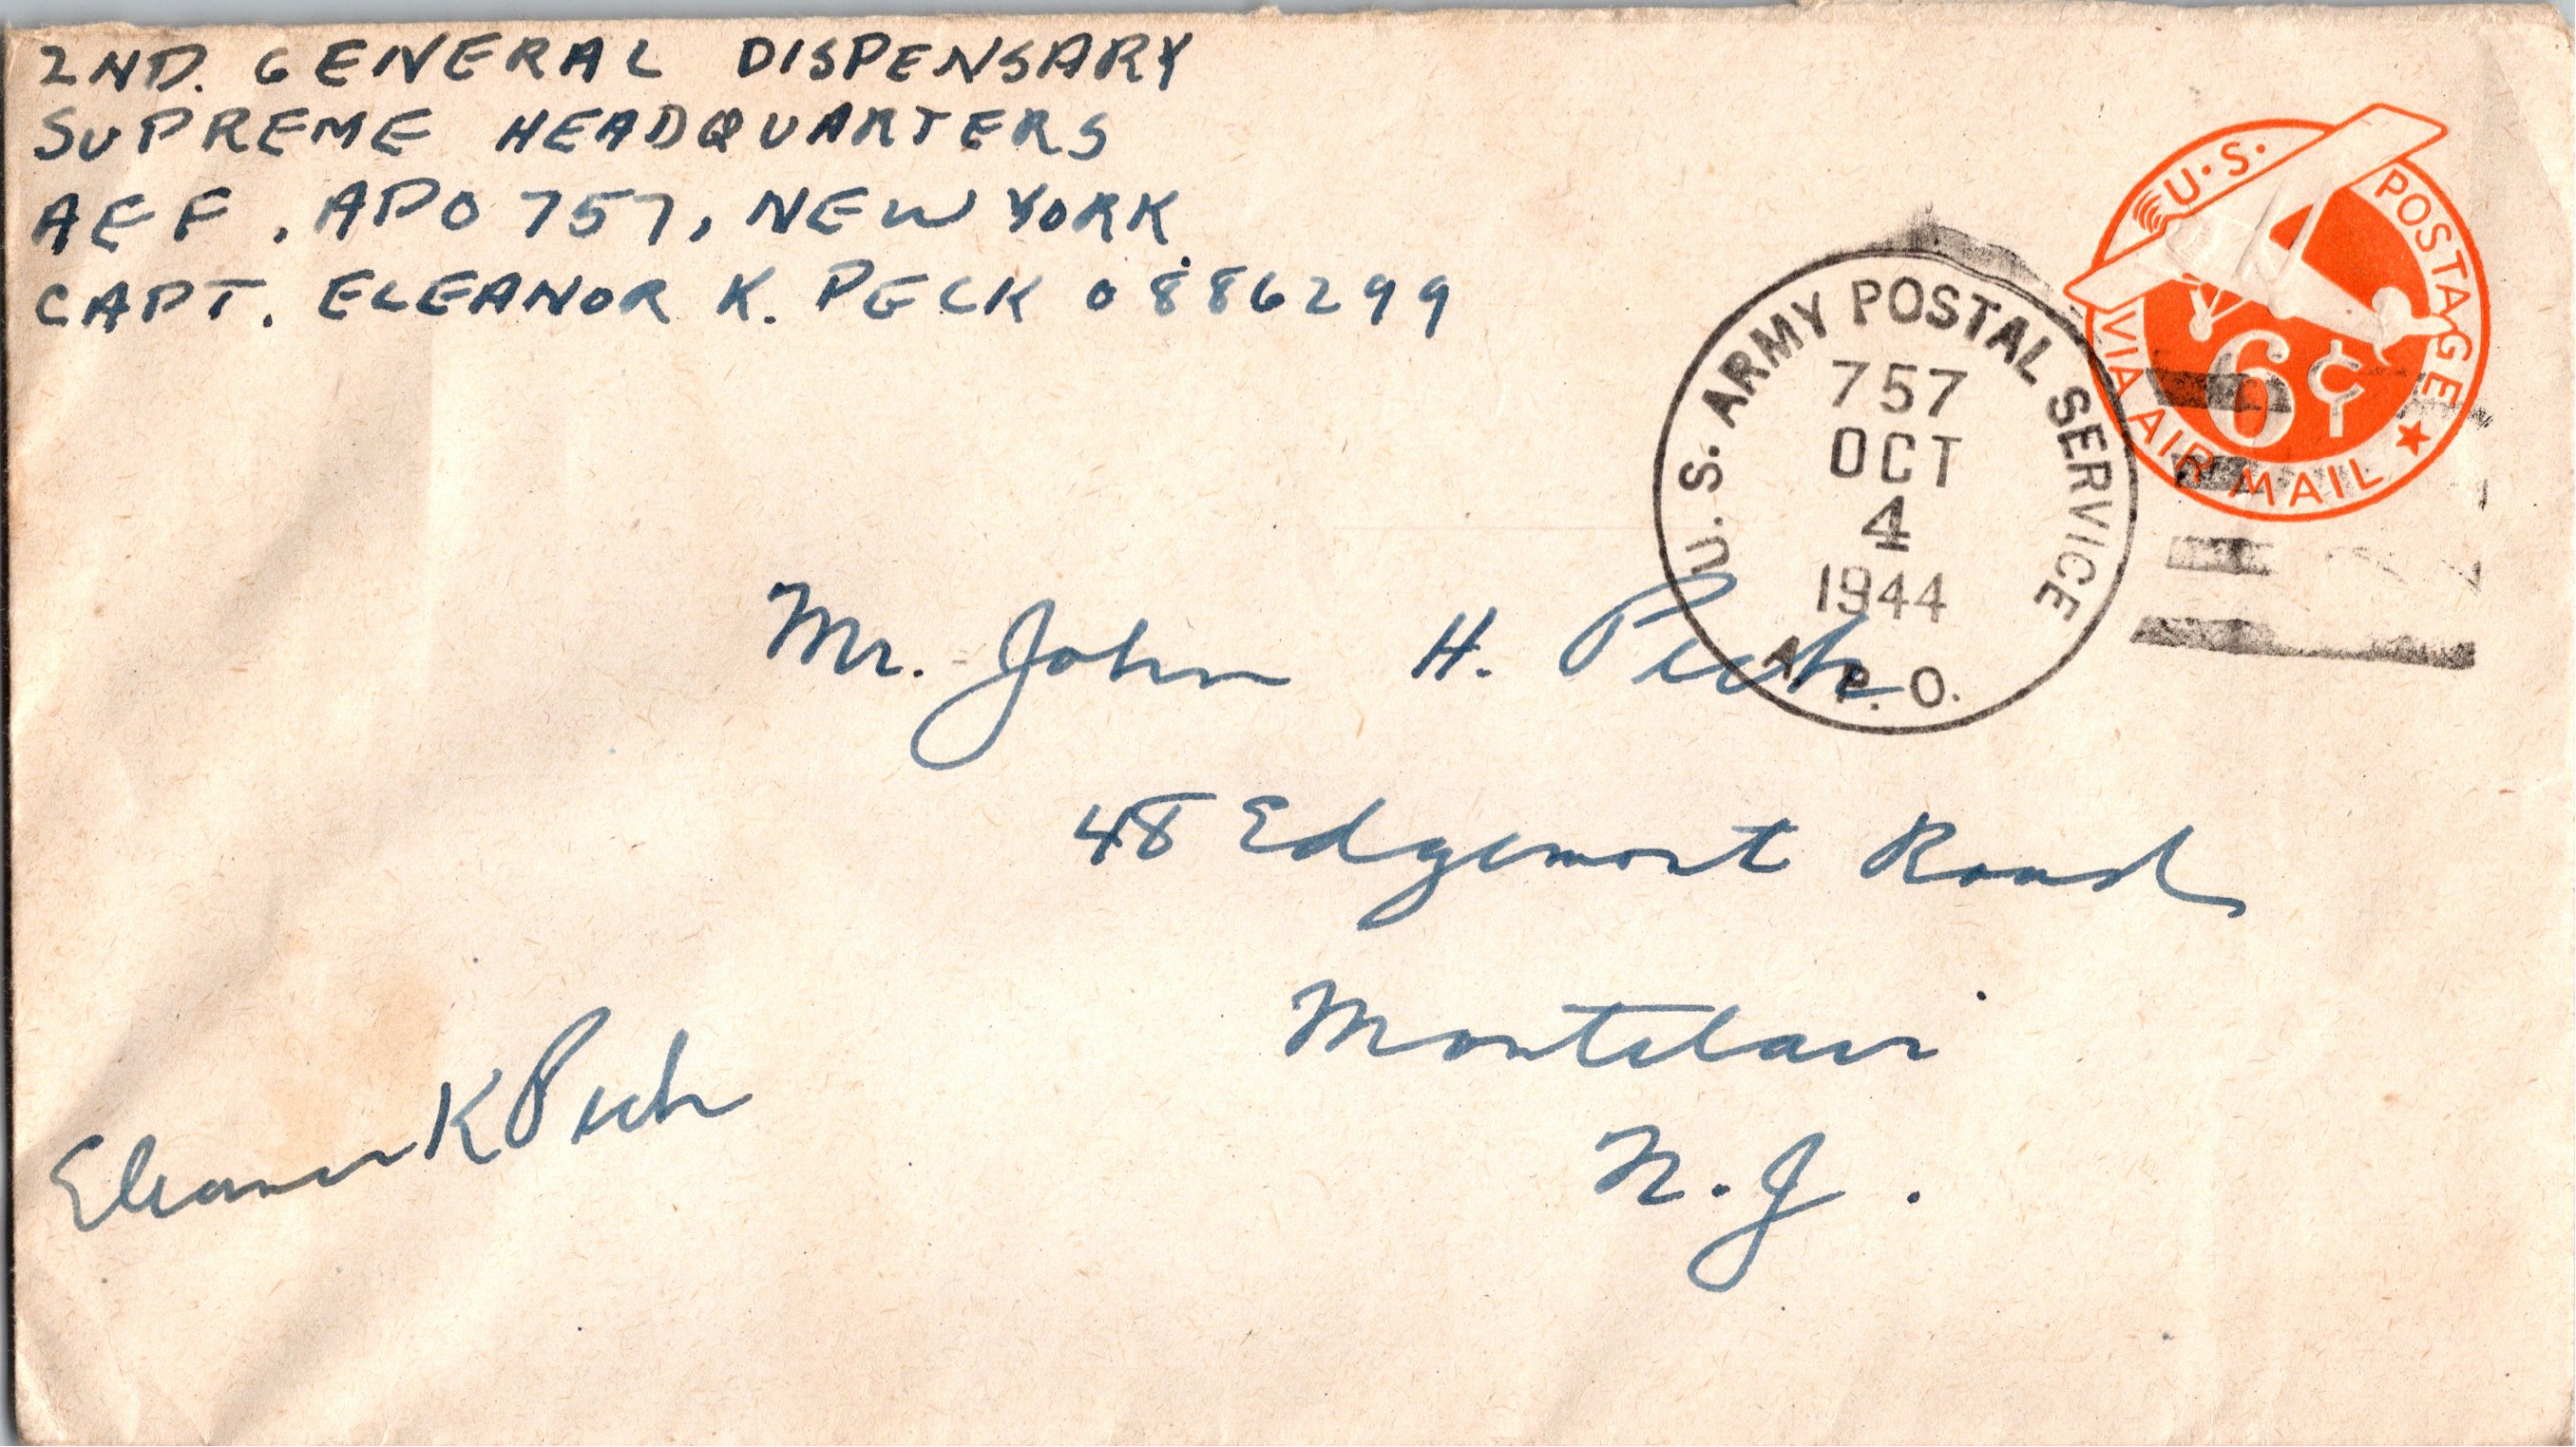 2ND. GENERAL DISPENSARY
SUPREME HEADQUARTERS
AEF, APO 757, NEW YORK
CAPT. ELEANOR K. PECK 0886299
U.S. POSTAGE
6¢
VIA AIR MAIL
U. S. ARMY POSTAL SERVICE
757
OCT
4
1944
A. P. O.
Mr. John H. Peck
48 Edgemont Road
Montclair
N. J.
Eleanor K Peck